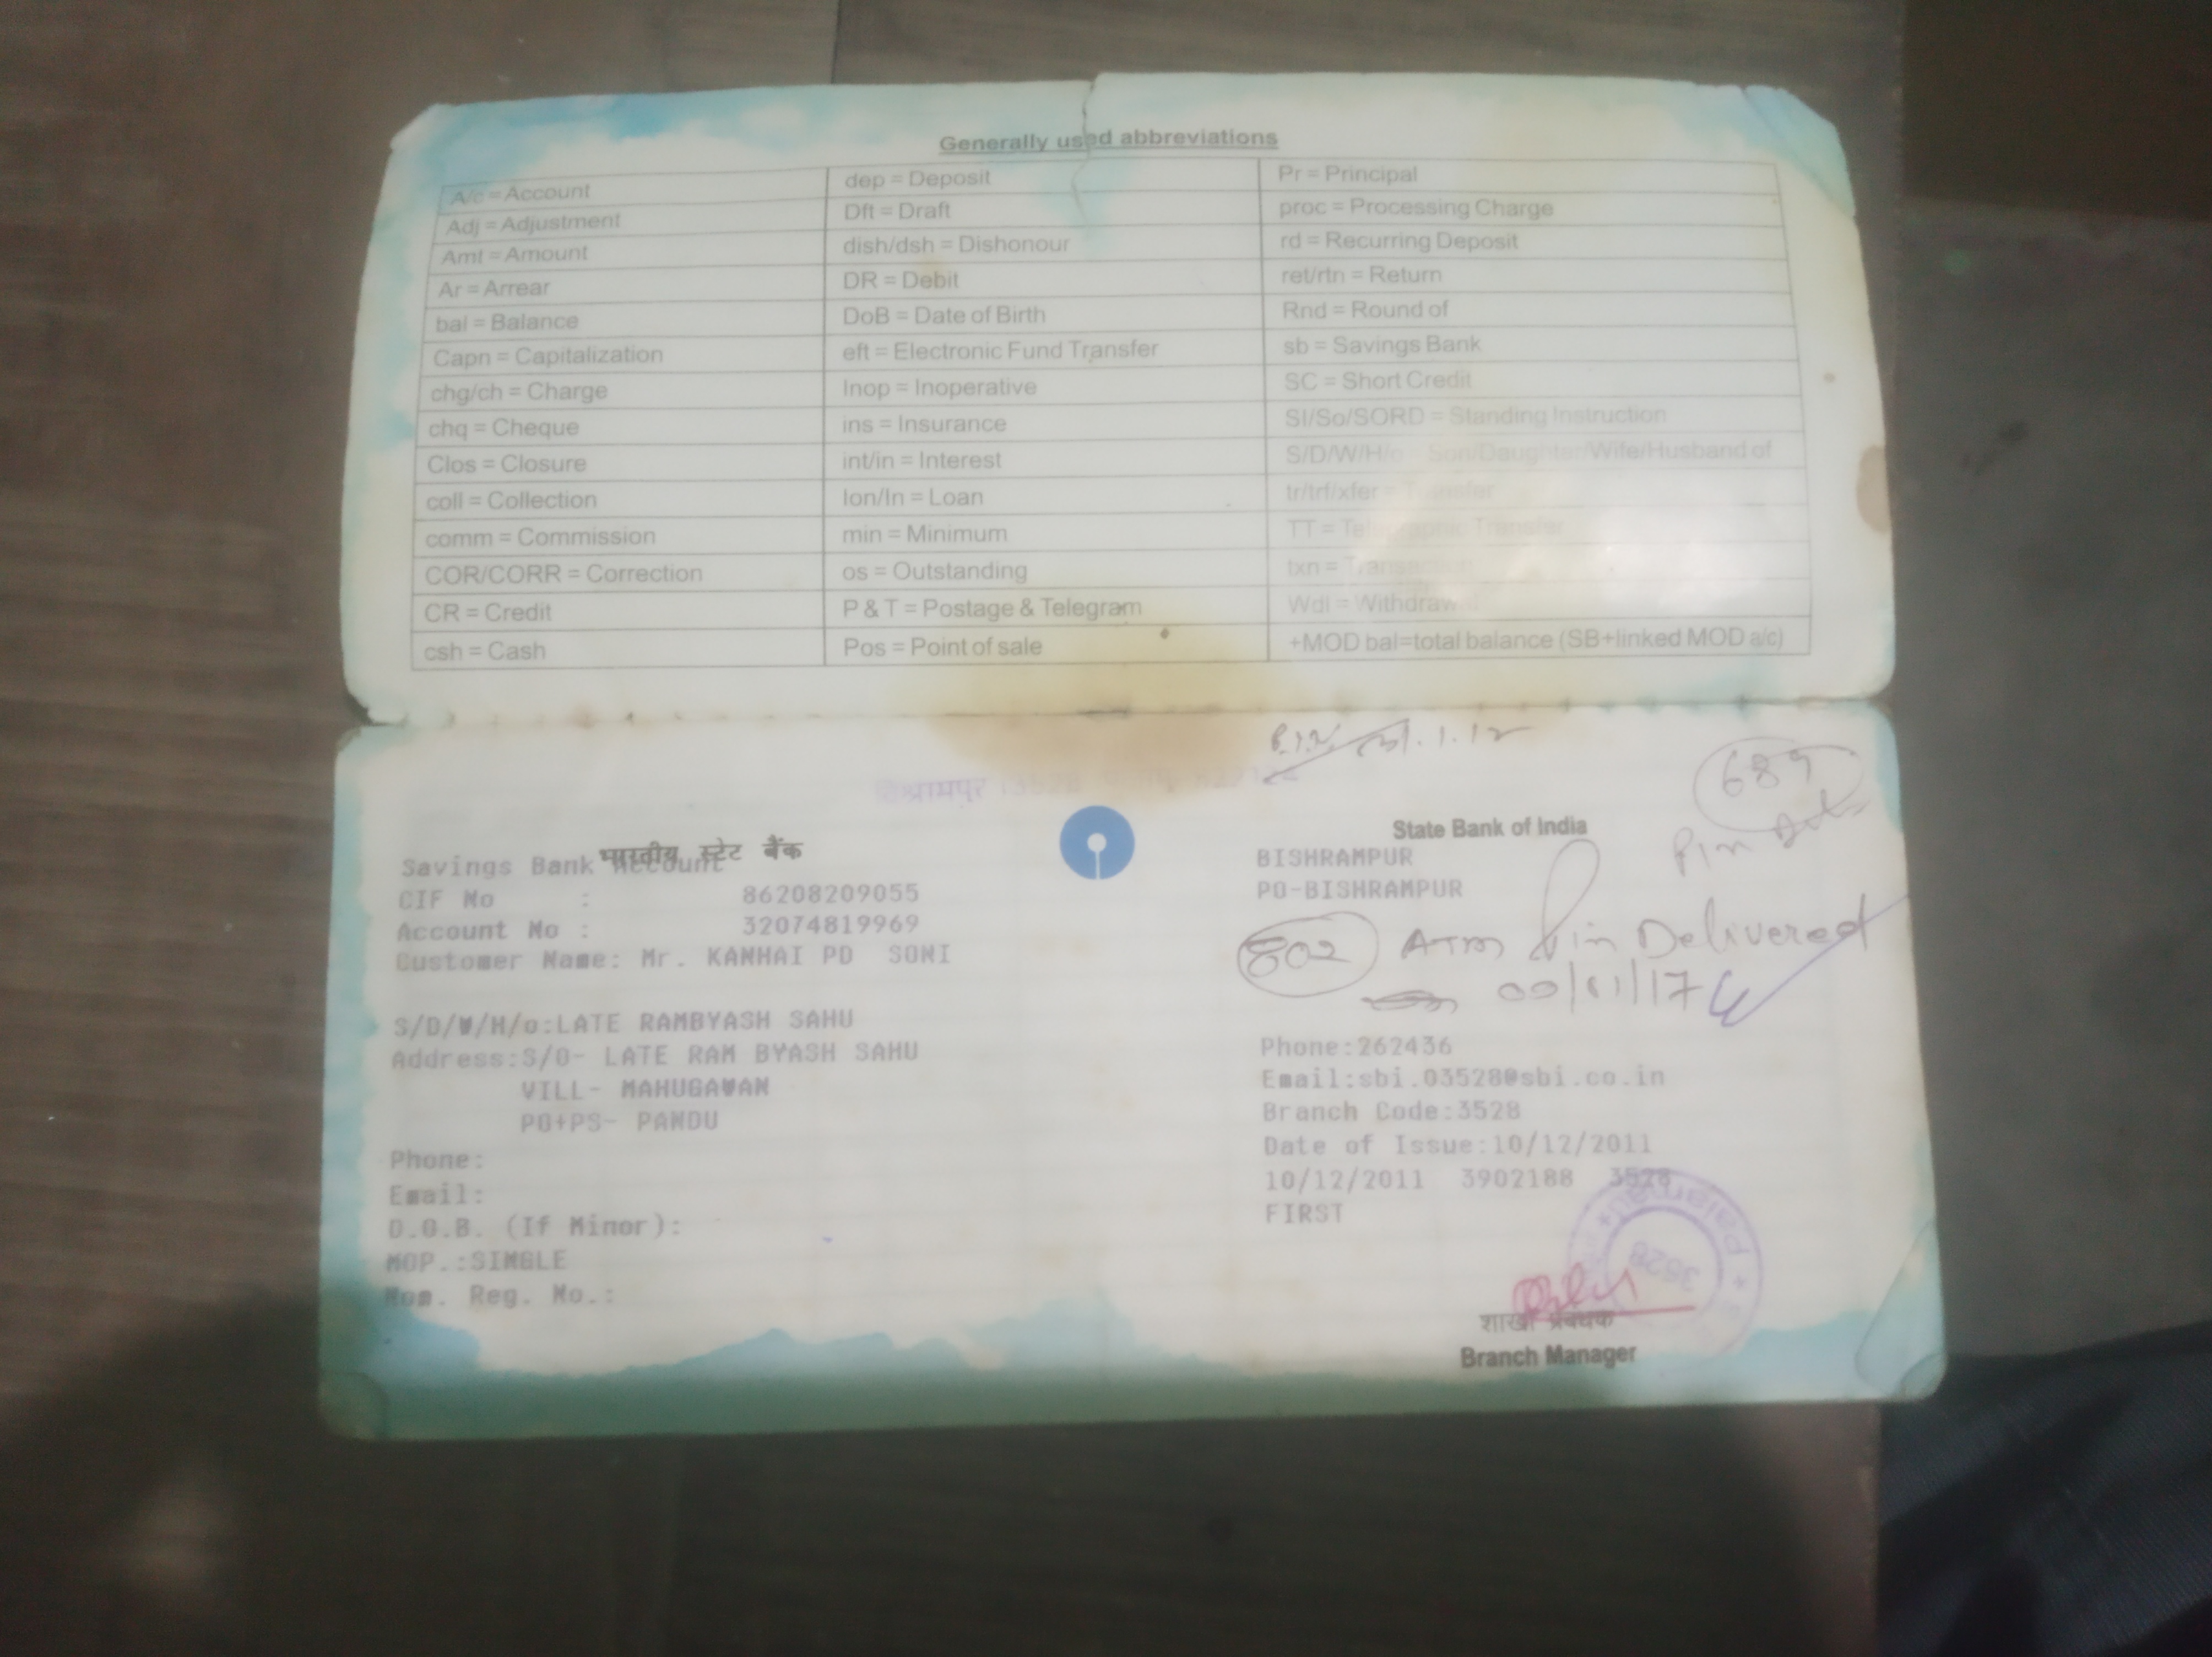 Generally used abbreviations
A/c = Account
Adj = Adjustment
Amt = Amount
Ar = Arrear
bal = Balance
Capn = Capitalization
chg/ch = Charge
chq = Cheque
Clos = Closure
coll = Collection
comm = Commission
COR/CORR = Correction
CR = Credit
csh = Cash
dep = Deposit
Dft = Draft
dish/dsh = Dishonour
DR = Debit
DoB = Date of Birth
eft = Electronic Fund Transfer
Inop = Inoperative
ins = Insurance
int/in = Interest
lon/ln = Loan
min = Minimum
os = Outstanding
P & T = Postage & Telegram
Pos = Point of sale
Pr = Principal
proc = Processing Charge
rd = Recurring Deposit
ret/rtn = Return
Rnd = Round of
sb = Savings Bank
SC = Short Credit
SI/So/SORD = Standing Instruction
S/D/W/H/o Son/Daughter/Wife/Husband of
tr/trf/xfer = Transfer
TT = Telegraphic Transfer
txn = Transaction
Wdl = Withdrawal
+MOD bal=total balance (SB+linked MOD a/c)
भारतीय स्टेट बैंक
Savings Bank Account
CIF No : 86208209055
Account No : 32074819969
Customer Name: Mr. KANHAI PD SONI
S/D/W/H/o:LATE RAMBYASH SAHU
Address:S/O- LATE RAM BYASH SAHU
VILL- MAHUGAWAN
PO+PS- PANDU
Phone:
Email:
D.O.B. (If Minor):
MOP.:SINGLE
Nom. Reg. No.:
689
Pin
State Bank of India
BISHRAMPUR
PO-BISHRAMPUR
802 ATM Pin Delivered
Phone:262436
Email:sbi.03528@sbi.co.in
Branch Code:3528
Date of Issue:10/12/2011
10/12/2011 3902188 3528
FIRST
3528
शाखा प्रबंधक
Branch Manager